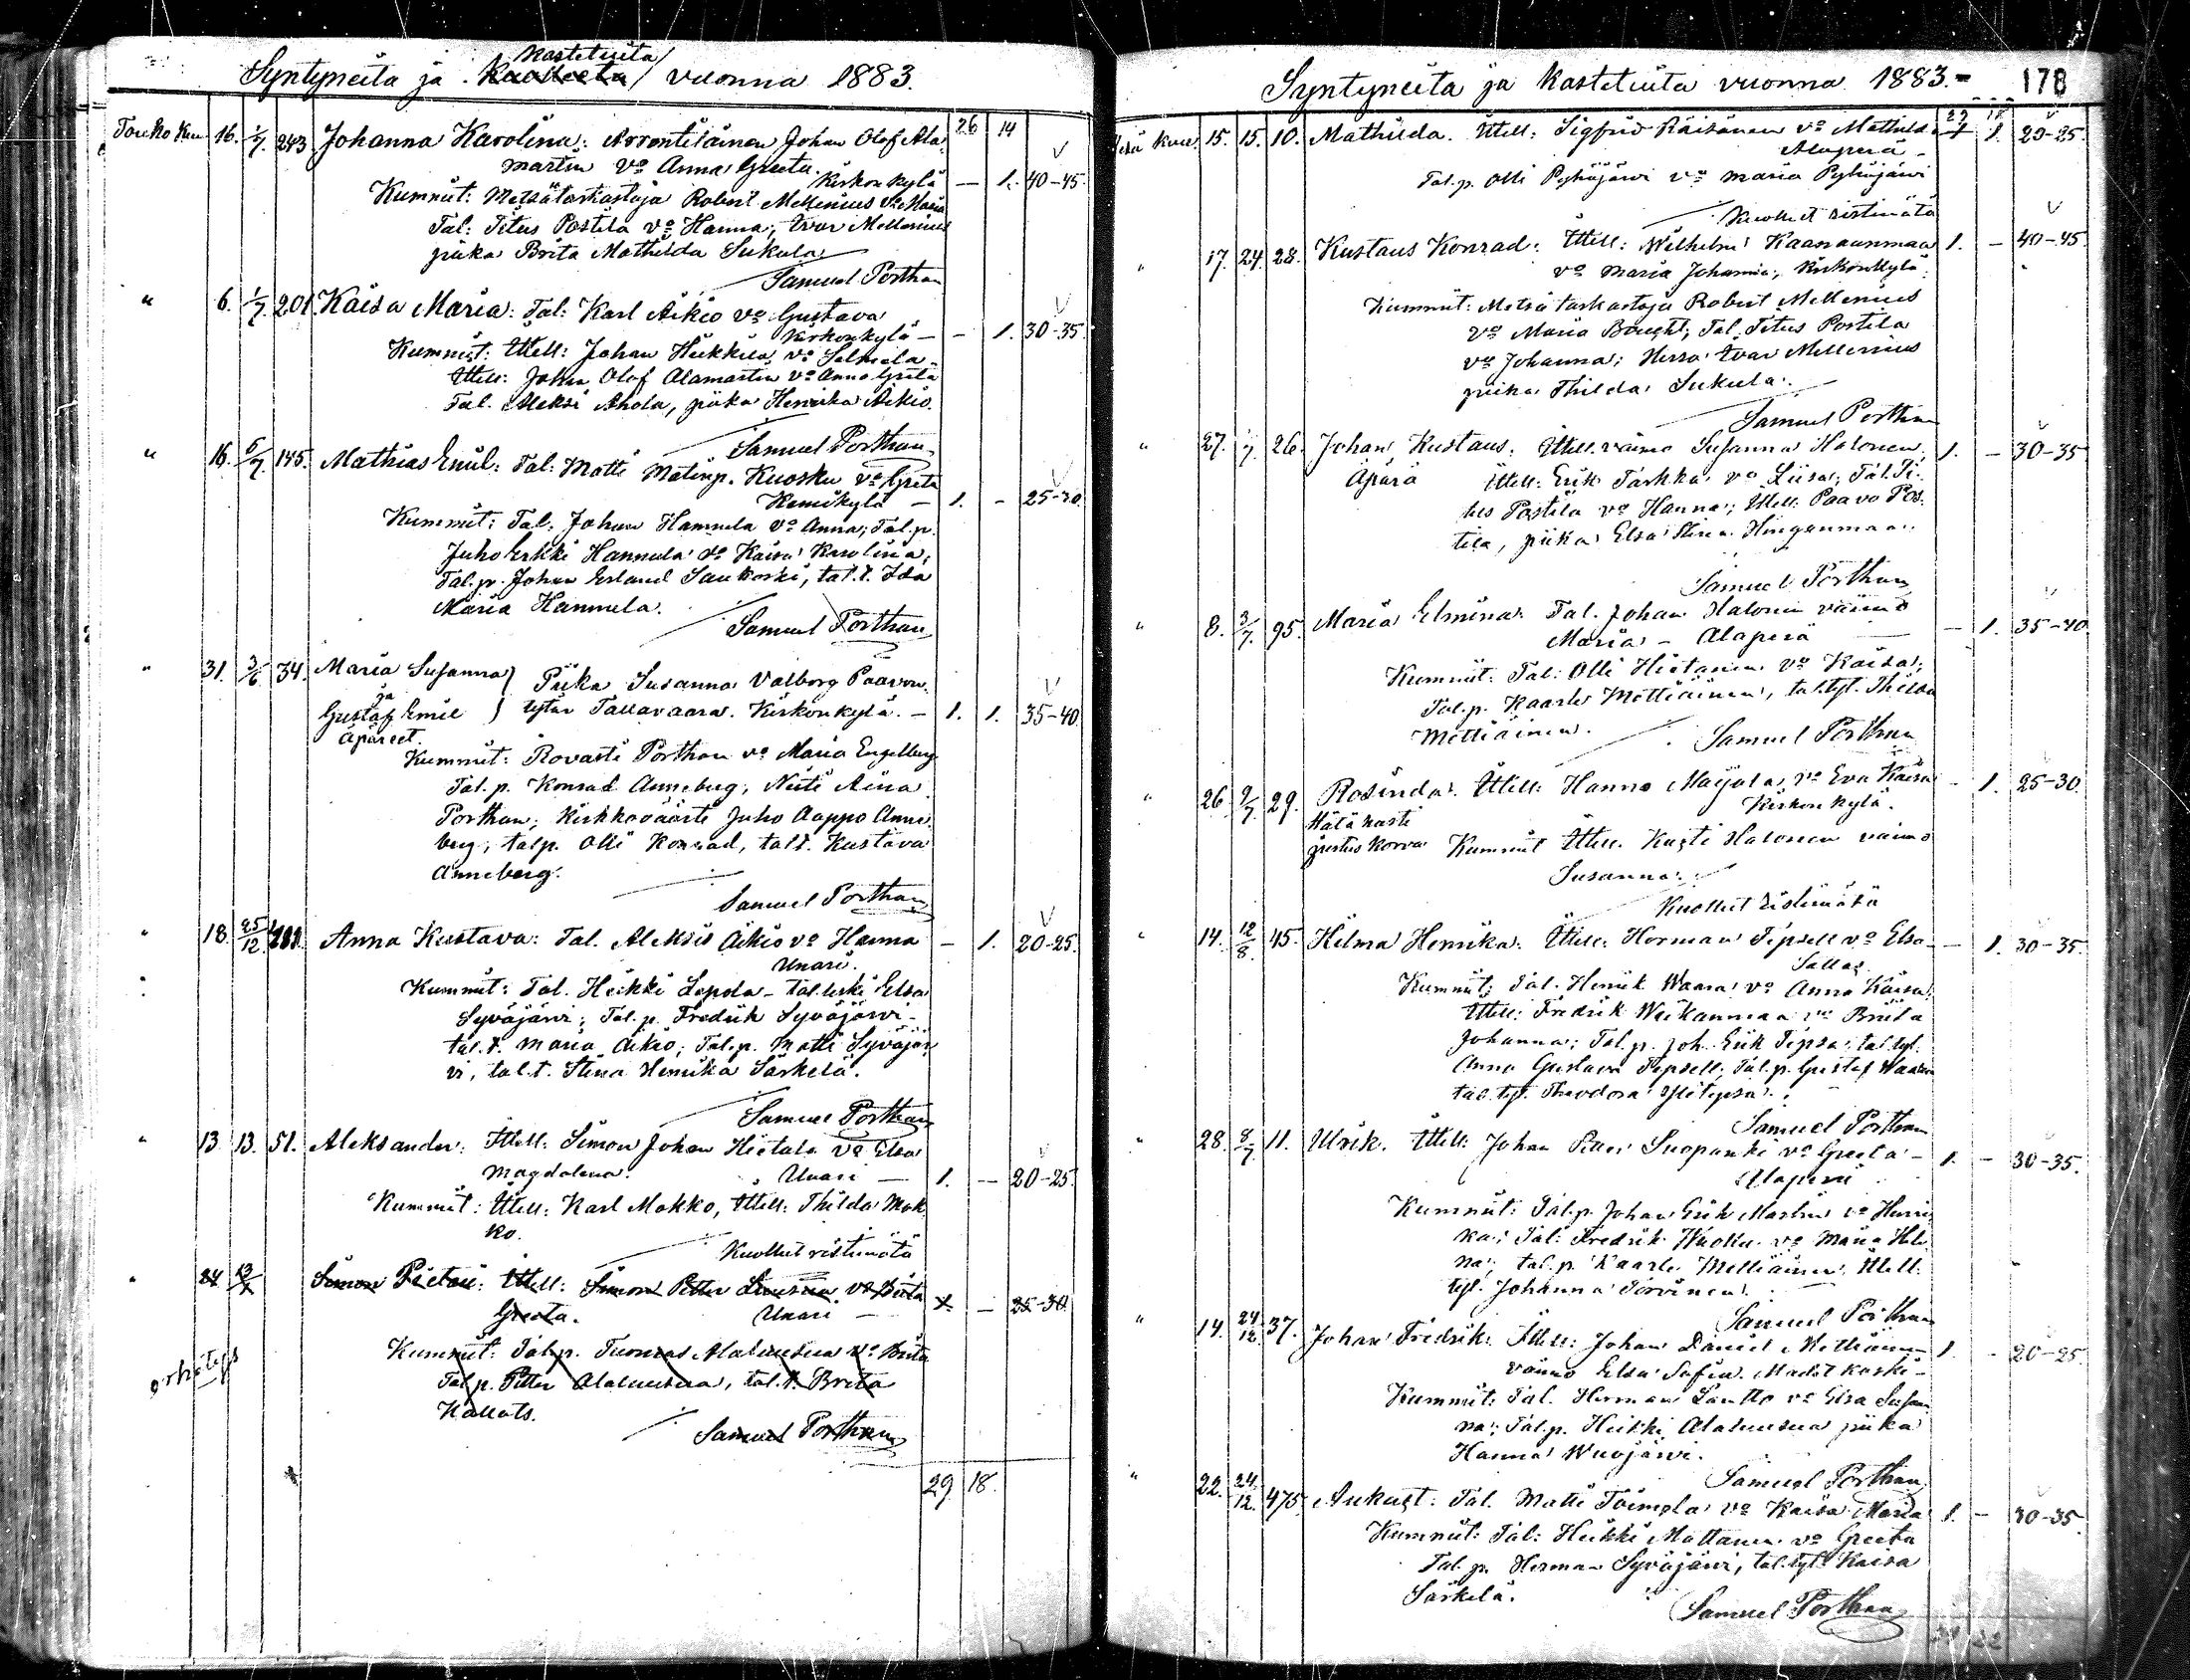 Kastetuita
Syntyneitä ja Kasteeta vuonna 1883.
Touko Kuu 16. 1/7. 243 Johanna Karolina: Arrentiläinen Johan Olof Ala 26 14
martin vo Anna Greeta.
Kirkonkylä — 1. 40-45.
Kummit: Metsätarkastaja Robert Mellenius vo Maria
Tal: Titus Postila vo Hanna; Ivar Mellenius
piika Brita Mathilda Sukula
Samuel Porthan
" 6. 1/7. 201 Kaisa Maria: Tal: Karl Aikio vo Gustava
Kirkonkylä — - 1. 30-35.
Kummit: Ittell: Johan Heikkilä vo Selmela
Ittell: Johan Olof Alamartin vo Anna Greta
Tal. Aleksi Ahola, piika Henrika Aikio.
Samuel Porthan
" 16. 5/7. 145. Mathias Emil: Tal: Matti Matinp. Kuosku vo Greta
Kemikylä — 1. - 25-30.
Kummit: Tal: Johan Hannula vo Anna; Tal.p.
Juho Erkki Hannula vo Kaisa Karolina;
Tal.p. Johan Erland Saukoski, tal.t. Ida
Maria Hannula.
Samuel Porthan
" 31. 3/6. 34. Maria Susanna } Piika Susanna Valborg Paavon
ja
Gustaf Emil } tytär Tallavaara. Kirkonkylä. — 1. 1. 35-40.
äpäreet.
Kummit: Rovasti Porthan vo Maria Engelberg
Tal.p. Konrad Anneberg; Neiti Aina
Porthan; Kirkkoväärti Juho Aappo Anne
berg, talp. Olli Konrad, tal.t. Kustava
Anneberg.
Samuel Porthan
" 18. 25/12. Anna Kustava: Tal. Aleksis Aikio vo Hanna - 1. 20-25.
Unari.
Kummit: Tal. Heikki Lepola - tal.leski Elsa
Syväjärvi; Tal.p. Fredrik Syväjärvi -
tal.t. Maria Aikio; Tal.p. Matti Syväjär
vi, tal.t. Stina Henrika Särkelä.
Samuel Porthan
" 13. 13. 51. Aleksander: Ittell: Simon Johan Hietala vo Elsa
Magdalena. Unari — 1. - 20-25.
Kummit: Ittell: Karl Mokko, Ittell: Thilda Mok
ko.
Kuollut ristimätä
" 24 13/7 Simon Pietari: Ittell: Simon Petter Luusua vo Brita
Greeta. Unari — 1. - 25-30.
Kummit: Tal.p. Tuomas Alaluusua vo Brita
Tal.p. Petter Alaluusua, tal.t. Brita
Kallats.
Samuel Porthan
erhätys
29. 18.
Syntyneitä ja Kastetuita vuonna 1883.- 178
Kesä Kuu. 15. 15. 10. Mathilda. Ittell: Sigfrid Räisänen vo Mathilda - 1. 20-25.
Alaperä -
Tal.p. Olli Pyhäjärvi vo Maria Pyhäjärvi
Kuollut ristimätä
" 17. 24. 28. Kustaus Konrad: Ittell: Wilhelm Kaarianmaa 1. - 40-45
vo Maria Johanna; Kirkonkylä.
Kummit: Metsätarkastaja Robert Mellenius
vo Maria Bought; Tal. Titus Postila
vo Johanna; Herra Ivar Mellenius
piika Thilda Sukula.
Samuel Porthan
" 27. 1/7. 26. Johan Kustaus. Ittell. vaimo Susanna Halonen. 1. - 30-35
Äpärä Ittell: Erik Tarkka vo Liisa; Tal. Ti-
tus Postila vo Hanna; Ittell: Paavo Pos-
tila, piika Elsa Stina Hinganmaa.
Samuel Porthan
" 8. 3/7. 95. Maria Elmina: Tal. Johan Halonen vaimo
Maria - Alaperä — - 1. 35-40.
Kummit: Tal: Olli Hietanen vo Kaisa;
Tal.p. Kaarlo Mettiäinen, tal.tyt. Thilda
Mettiäinen.
Samuel Porthan
" 26 9/7. 29. Rosinda. Ittell: Hanno Maijala vo Eva Kaisa - 1. 25-30.
Kirkonkylä.
Hätäkasti
Justus Korva Kummit Ittell. Kusti Halonen vaimo
Susanna.
Kuollut ristimätä
" 14. 12/8. 45. Hilma Henrika: Ittell: Herman Tepsell vo Elsa - - 1. 30-35.
Sattas.
Kummit: Tal. Henrik Waara vo Anna Kaisa;
Ittell: Fredrik Weikanmaa vo Brita
Johanna; Tal.p. Joh. Erik Tepsa; tal.tyt.
Anna Gustava Tepsell; Tal.p. Gustaf Waara
tal.tyt. Theodora Ylitepsa.
Samuel Porthan
" 28. 8/7. 11. Ulrik. Ittell: Johan Petter Suopanki vo Greeta - 1. - 30-35.
Alaperä
Kummit: Tal.p. Johan Erik Martin vo Henri
ka; Tal: Fredrik Kuosku vo Maria Hele
na; tal.p. Kaarlo Mettiäinen, Ittell:
tyt. Johanna Torvinen.
Samuel Porthan
" 14. 24/12. 37. Johan Fredrik: Ittell: Johan Daniel Mettiäinen 1. - 20-25.
vaimo Elsa Sofia. Madetkoski -
Kummit: Tal. Herman Lantto vo Elsa Susan
na; Tal.p. Heikki Alaluusua piika
Hanna Wuojärvi.
Samuel Porthan
" 22. 24/12. 475. Aukust: Tal. Matti Toimola vo Kaisa Maria 1. - 30-35.
Kummit: Tal: Heikki Mattanen vo Greeta
Tal.p. Herman Syväjärvi, tal.tyt. Kaisa
Särkelä.
Samuel Porthan